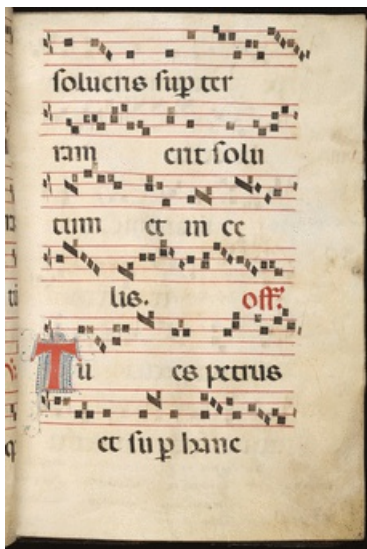 solueris sup ter
ram erit solu
tum et in ce
lis. off.
Tu es petrus
et sup hanc